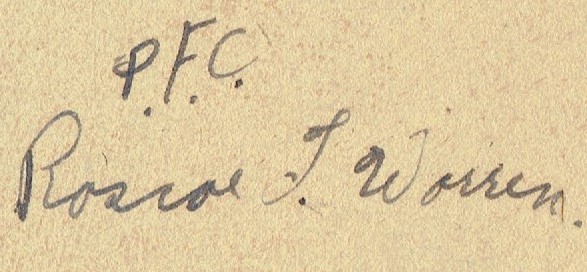 P.F.C.
Roscoe T. Warren.